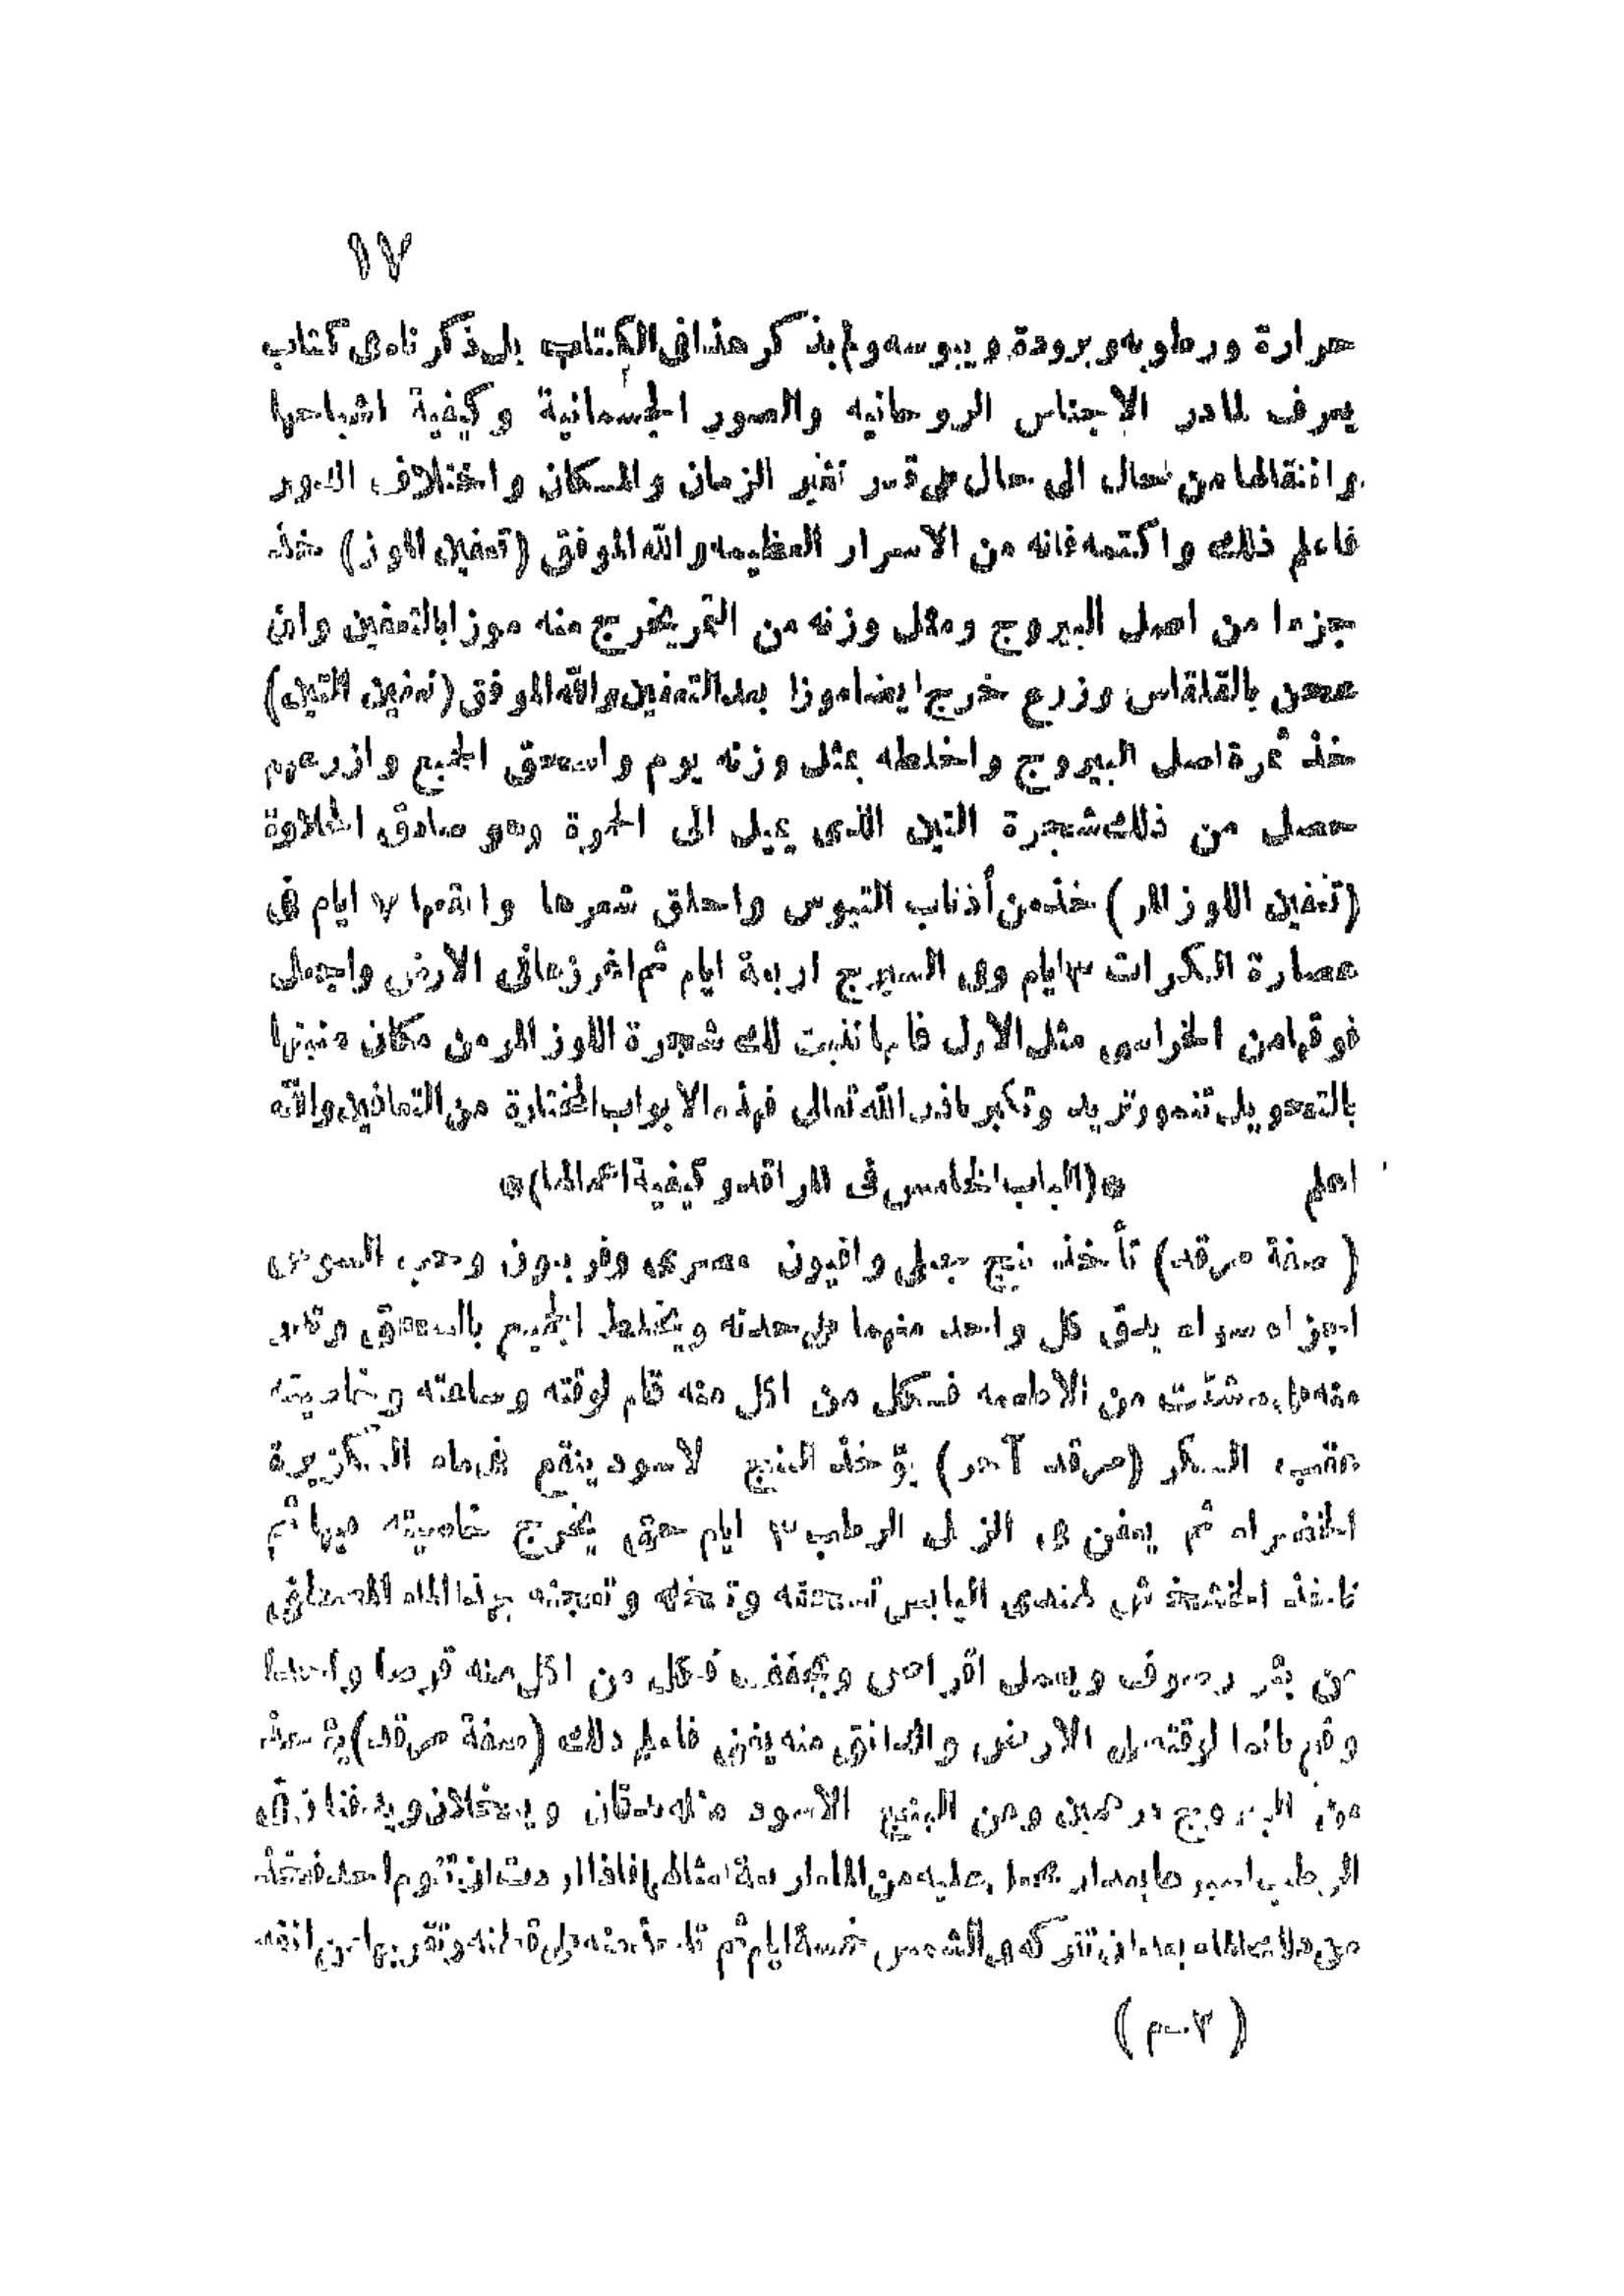 ١٧
حرارة ورطوبه وبرودة ويبوسه ولم يذكر هذا فى الكتاب بل ذكرناه فى كتاب
يعرف الاجناس الروحانيه والصور الجسمانية وكيفية اشباحها
وانتقالها من حال الى حال على قدر تغير الزمان والمكان واختلاف الدور
فاعلم ذلك واكتمه فانه من الاسرار العظيمه والله الموفق (تعفين الموز) خذ
جزءا من اصل اليبروج ومثل وزنه من التمر يخرج منه موزا بالتعفين وان
عجن بالقلقاس وزرع خرج ايضا موزا بعد التعفين والله الموفق (تعفين التين)
خذ ثمرة اصل اليبروج واخلطه بمثل وزنه يوم واسحق الجميع وازرعهم
حصل من ذلك شجرة التين الذى يميل الى الحمرة وهو صادق الحلاوة
(تعفين اللوز المر) خذ من أذناب التيوس واحلق شعرها وانقعها ٧ ايام فى
عصارة الكرات ٣ ايام وفى السيرج اربعة ايام ثم اغرزها فى الارض واجعل
فوقها من الخراسى مثل الاول فانها تنبت لك شجرة اللوز المر من مكان منبتها
بالتحويل تنمو وتزيد وتكبر باذن الله تعالى فهذه الابواب المختارة من التعافين والله
اعلم *(الباب الخامس فى المراقد وكيفية اعمالها)*
(صفة مرقد) تأخذ بنج جبلى وافيون مصرى وفربيون وحب السوس
اجزاء سواء يدق كل واحد منهما على حدته ويخلط الجميع بالسحق
من الاطعمه فكل من اكل منه نام لوقته وساعته وخاصيته
السكر (مرقد آخر) يؤخذ البنج لاسود ينقع فى ماء الكزبرة
الخضراء ثم يعفن فى الزبل الرطب ٣ ايام حتى يخرج خاصيته فيها ثم
تاخذ الخشخاش اليابس تسحقه وتنخله وتعجنه بهذا الماء المصفى
من وصوف ويعمل اقراص ويجفف فكل من اكل منه قرصا واحدا
وقع نائما لوقته على الارض والدانق منه يغنى فاعلم ذلك (صفة مرقد) يؤخذ
من اليبروج درهمين ومن البنج الاسود مثله يدقان وينخلان ويدفنا فى
الرطب عليه من الماء اربعة امثالهم فاذا اردت ان تنوم احد فخذ
من ذلك الماء بعد ان تتركه فى الشمس خمسة ايام ثم تاخذ منه على قطنه وتقربها من انفه
(٣-م)